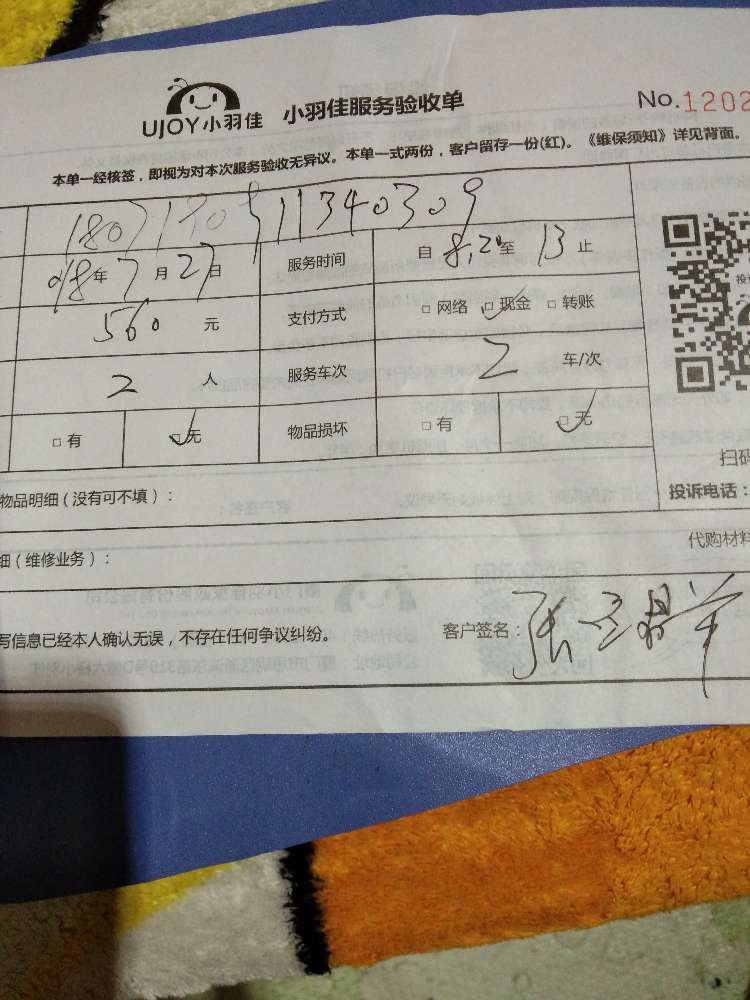 UJOY小羽佳 小羽佳服务验收单 No.1202
本单一经核签，即视为对本次服务验收无异议。本单一式两份，客户留存一份(红)。《维保须知》详见背面。
18071909511340309
018年7月27日 服务时间 自8.20至13止
560元 支付方式 □网络 □现金 □转账
2人 服务车次 2车/次
□有 □无 物品损坏 □有 □无
扫码
物品明细（没有可不填）： 投诉电话：
细（维修业务）： 代购材料
写信息已经本人确认无误，不存在任何争议纠纷。 客户签名：